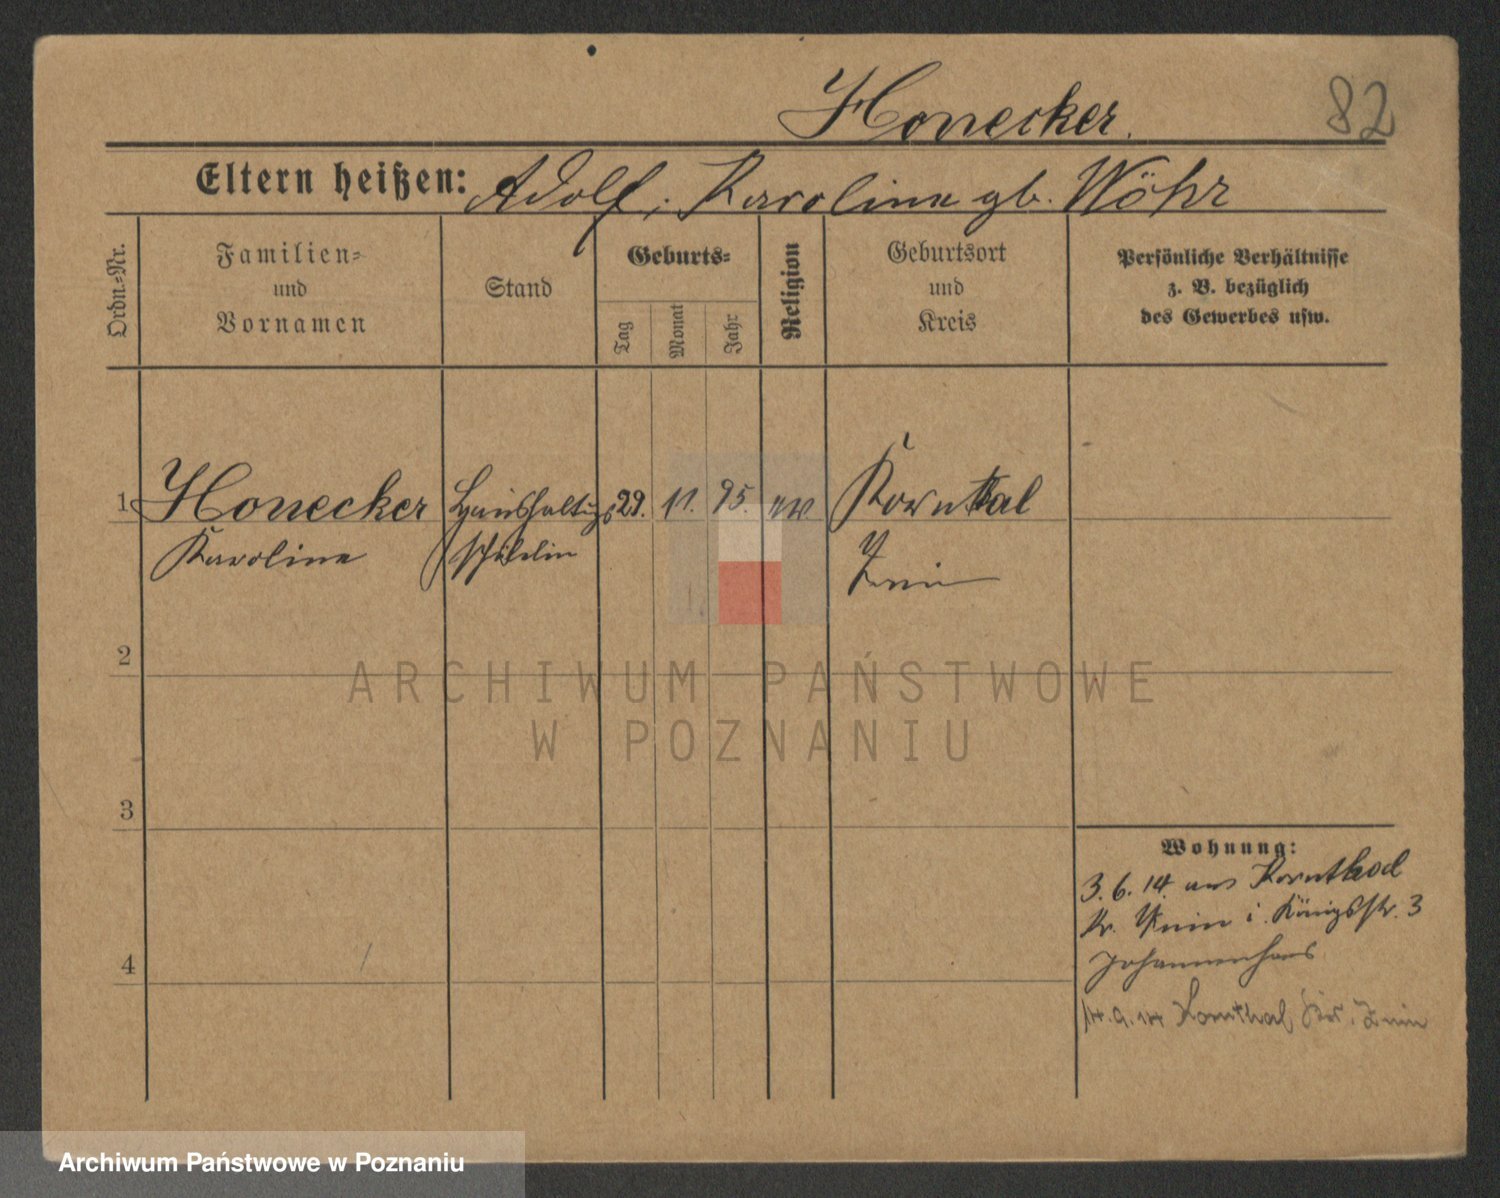 Honecker.
82
Eltern heißen: Adolf, Karoline gb. Wöhr
Ordn.-Nr.
Familien-
und
Vornamen
Stand
Geburts-
Tag
Monat
Jahr
Religion
Geburtsort
und
Kreis
Persönliche Verhältnisse
z. B. bezüglich
des Gewerbes usw.
1 Honecker Haushaltungs 29. 11. 95. ev Kornthal
Karoline schülerin Znin
2
3
4
Wohnung:
3.6.14. aus Kornthal
Kr. Znin i. Königsstr. 3
Johannenhaus
14.9.14 Kornthal Znin
ARCHIWUM PAŃSTWOWE
W POZNANIU
Archiwum Państwowe w Poznaniu